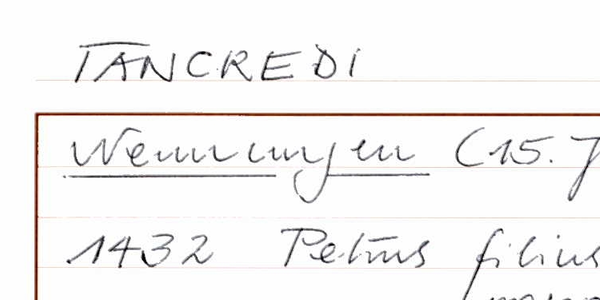 TANCREDI
Wemmingen (15. J
1432 Petrus filius